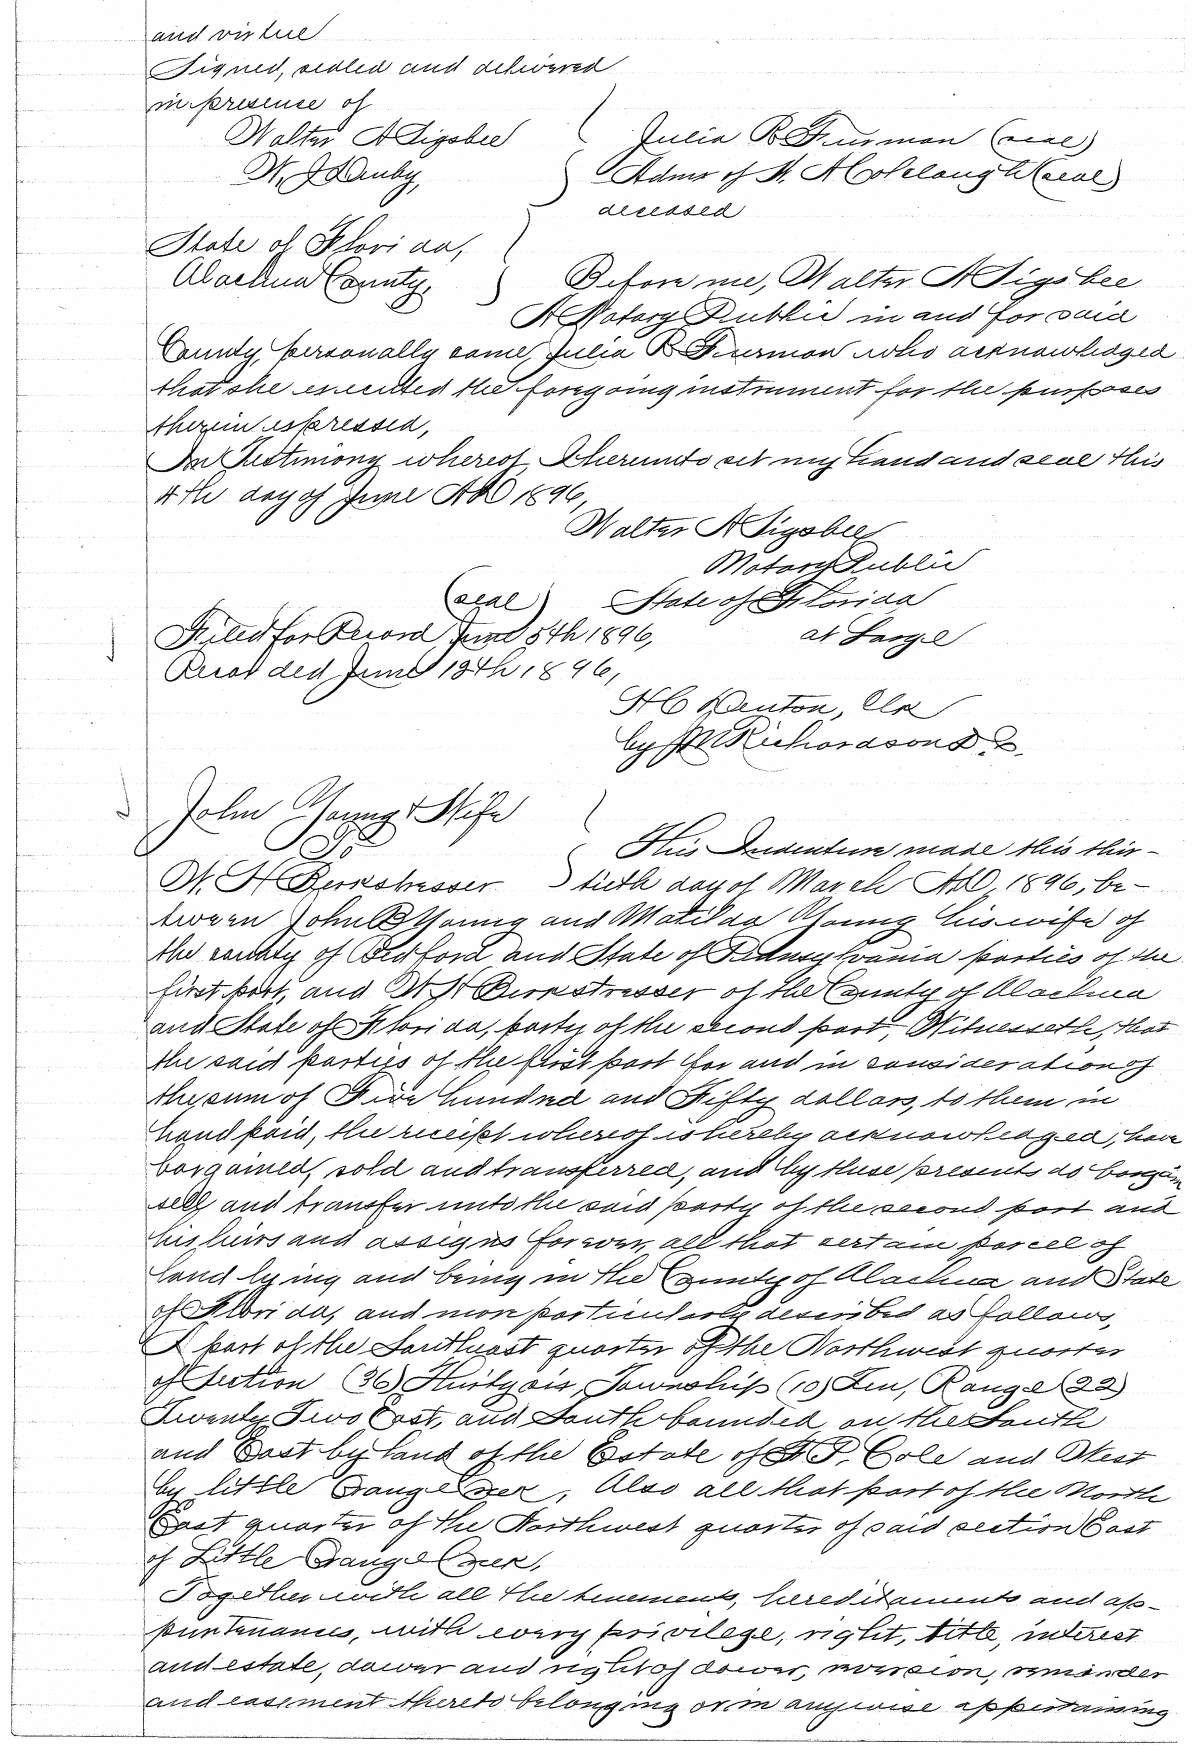 and virtue
Signed, sealed and delivered
in presence of
Walter A Sigsbee Julia B Furman (seal)
Admr of (seal)
deceased
State of Florida,
Alachua County, Before me, Walter A Sigsbee
A Notary Public in and for said
County, personally came, Julia B Furman who acknowledged
that she executed the foregoing instrument for the purposes
therein expressed,
In Testimony whereof, I hereunto set my hand and seal this
4th day of June AD 1896,
Walter A Sigsbee
Notary Public
(seal) State of Florida
Filed for Record June 5th 1896, at Large
Recorded June 13th 1896,
H C Denton, Clk
by J M Richardson D C.
John Young & Wife
To This Indenture made this thir-
W. H Berkstresser tieth day of March AD, 1896, be-
tween John B Young and Matilda Young his wife of
the county of Bedford and State of Pennsylvania parties of the
first part, and W H Berkstresser of the County of Alachua
and State of Florida, party of the second part, Witnesseth, that
the said parties of the first part for and in consideration of
the sum of Five hundred and Fifty dollars, to them in
hand paid, the receipt whereof is hereby acknowledged, have
bargained, sold and transferred, and by these presents do bargain
sell and transfer unto the said party of the second part and
his heirs and assigns forever, all that certain parcel of
land lying and being in the County of Alachua and State
of Florida, and more particularly described as follows,
A part of the Southeast quarter of the Northwest quarter
of Section (36) Thirty six, Township (10) Ten, Range (22)
Twenty Two East, and South bounded on the South
and East by land of the Estate of P. Cole and West
by little Orange Creek, Also all that part of the North
East quarter of the Northwest quarter of said section East
of Little Orange Creek,
Together with all the tenements, hereditaments and ap-
purtenances, with every privilege, right, title, interest
and estate, dower and right of dower, reversion, remainder
and easement thereto belonging or in anywise appertaining